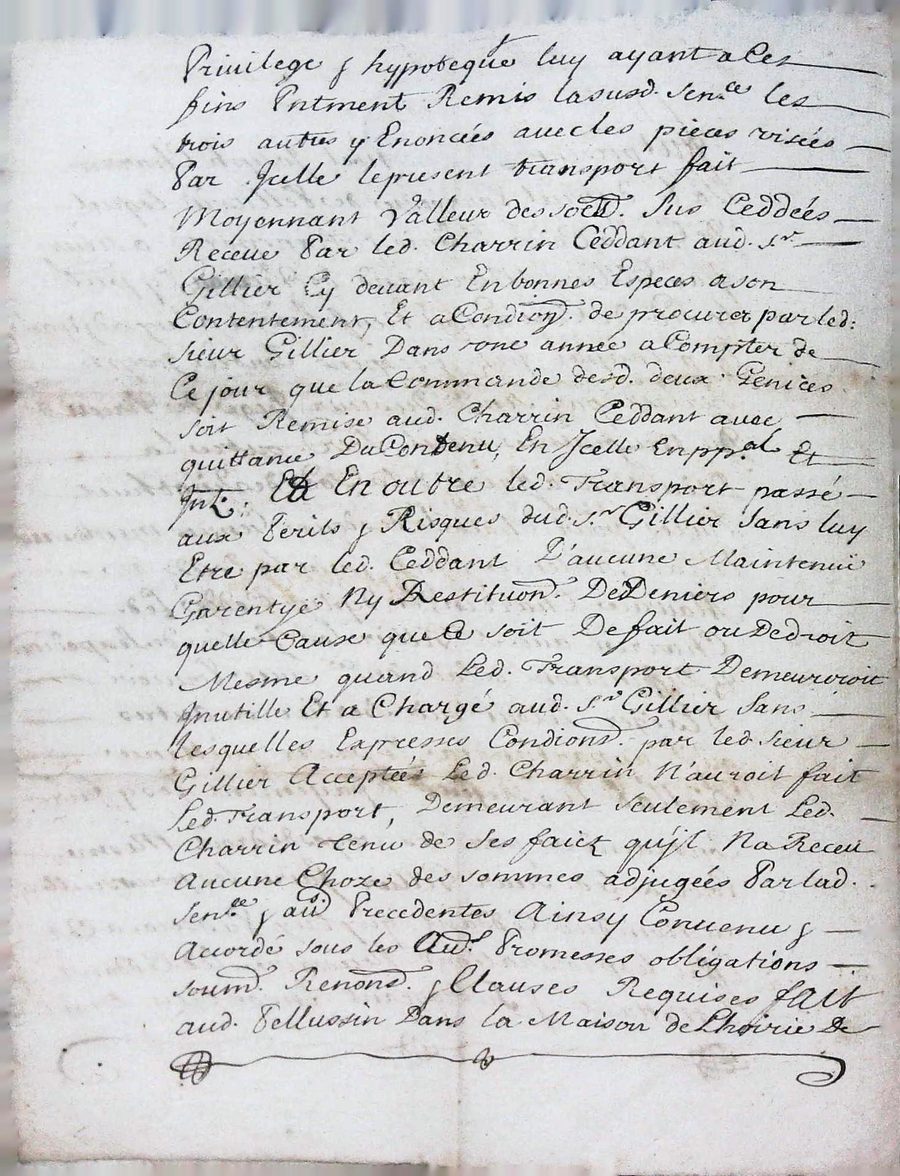 Privilege & hypoteque luy ayant a Ces
fins Pntment Remis lasusd. sence les
trois autres y Enoncées avec les pieces visées
Par Jcelle le present transport fait
Moyennant Valleur des Sus Ceddées
Receue Par led. Charrin Ceddant aud. sr
Gillier Cy devant En bonnes Especes a son
Contentement, Et a Condion. de procurer par led:
sieur Gillier Dans une année a Compter de
Ce jour que la Commande desd. deux Genices
soit Remise aud. Charrin Ceddant avec
quittance Du Contenu, En Jcelle En ppal Et
Jnt. Et En outre led. Transport passé
aux Perils & Risques dud. sr Gillier Sans luy
Etre par led. Ceddant D'aucune Maintenüe
Garentye Ny Restituon. De Deniers pour
quelle Cause que Ce soit De fait ou De droit
Mesme quand Led. Transport Demeureroit
Jnutille Et a Chargé aud. Sr Gillier Sans
lesquelles Expresses Condions. par led sieur
Gillier Acceptées Led. Charrin N'auroit fait
Led. Transport, Demeurant seulement Led.
Charrin Tenu de Ses faick qu'jl Na Receu
Aucune Choze des sommes adjugées Par lad.
Sence & aux Precedentes Ainsy Convenu &
Accordé sous les Promesses obligations
soumd. Renond. & Clauses Requises fait
aud. Pellussin Dans la Maison de Lhoirie De